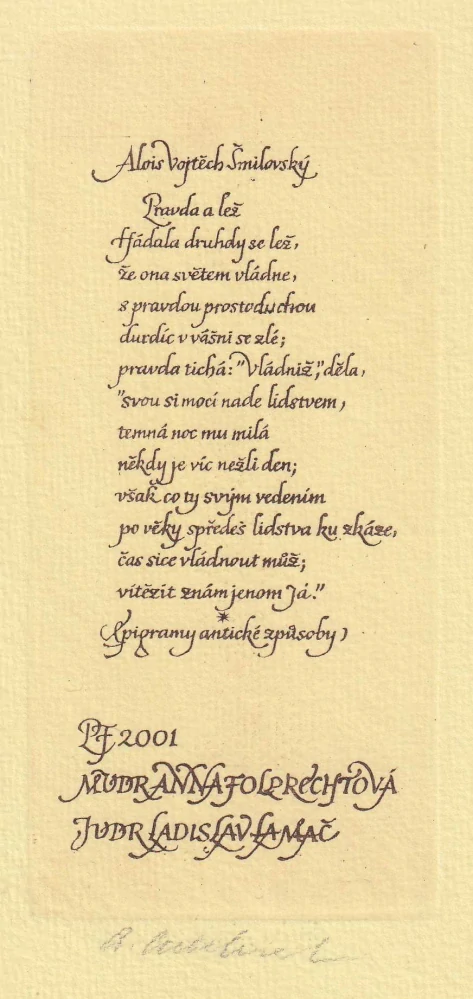 Alois Vojtěch Šmilovský
Pravda a lež
Hádala druhdy se lež,
že ona světem vládne,
s pravdou prostoduchou
durdíc v vášni se zlé;
pravda tichá: "Vládniž," děla,
"svou si mocí nade lidstvem,
temná noc mu milá
někdy je víc nežli den;
však co ty svým vedením
po věky spředeš lidstva ku zkáze,
čas sice vládnout můž;
vítězit znám jenom Já."
*
(Epigramy antické způsoby)
PF 2001
MUDR ANNA FOLPRECHTOVÁ
JUDR LADISLAV LAMAČ